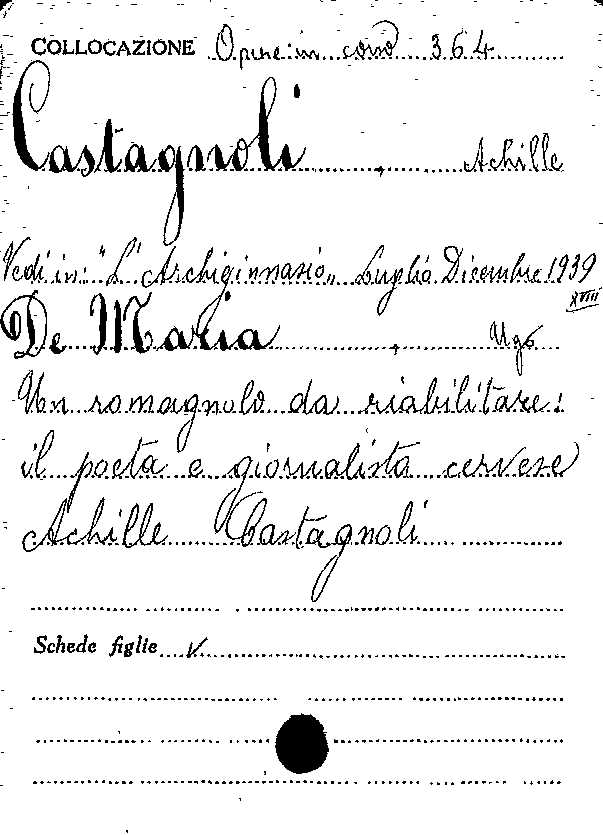 COLLOCAZIONE Opere in cons 364
Castagnoli, Achille
Vedi in: "L'Archiginnasio" Luglio Dicembre 1939
XVIII
De Maria, Ugo
Un romagnolo da riabilitare:
il poeta e giornalista cervese
Achille Castagnoli
Schede figlie V